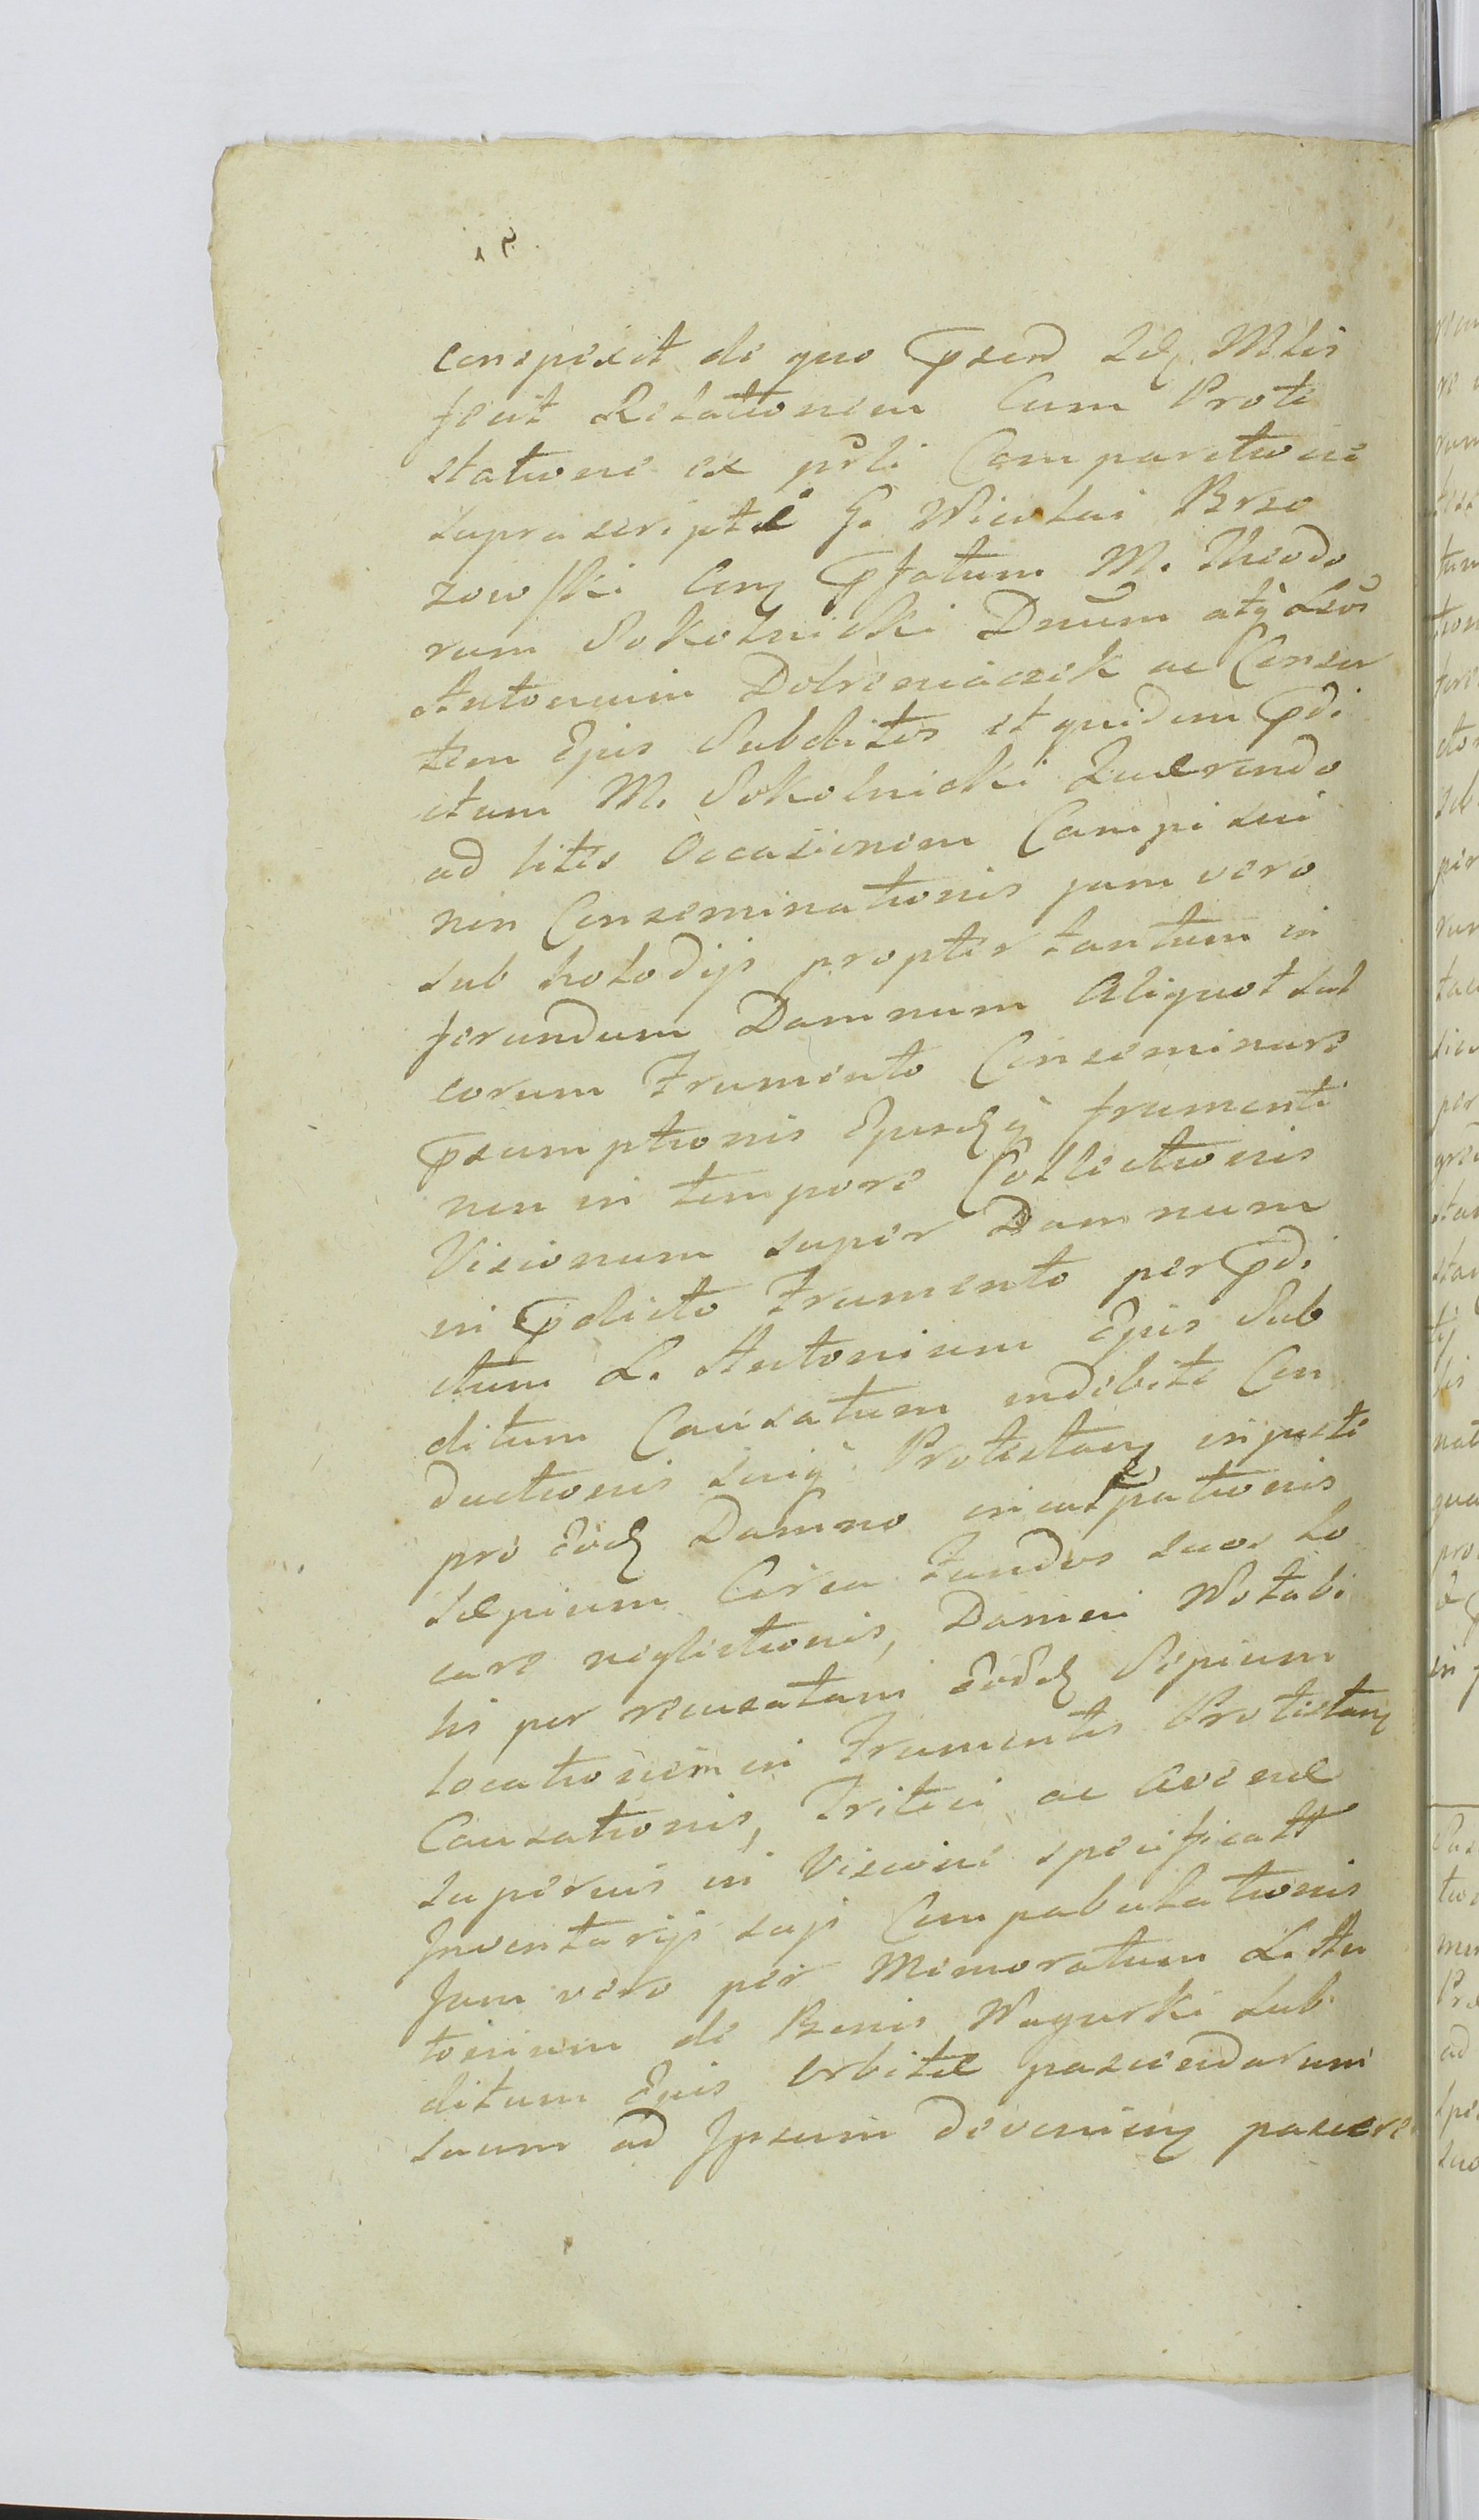 conspexit de quo
fecit Relationem Cum Prote
statione ex prsli Comparitione
suprascriptæ G. Nicolai Brzo
zowski Con Pfatum M. Theodo
rum Sokolnicki Dnum atq
Antonium ac Conser
tem Ejus Subditos et quidem Pdi
ctum M. Sokolnicki Quærendo
ad lites Occasionem Campi sui
non Conseminationis jam vero
sub holodijs propter tantum in
ferundum Damnum Aliquot sul
corum Frumento Conseminare
Psumptionis Ejusdq frumenti
non in tempore Collectionis
Visionum super Damnum
in Pdicto Frumento per Pdi
ctum L. Antonium Ejus Sub
ditum Causatum indebite Con
ductionis suiq Protestans injuste
pro Eod Damno inculpationis
sæpium Circa Fundos suos lo
care neglectionis, Damni Notabi
lis per recusatam Eod Sepium
locationem in Frumentis Protestans
Causationis, Tritici ac Avenæ
superius in Visione specificatt
Inventarijs sujs Compabulationis
Jam vero per Memoratum L. An
tonium de Bonis Sub
ditum Ejus Orbitæ pascendarum
suum ad Ipsum deveniens pascere